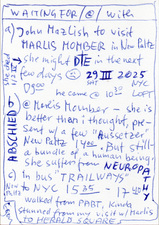 WAITING FOR / @ / With
a) John Mazlish to visit
MARLIS MOMBER in New Paltz
she might DIE in the next
few days 29 III 2025
0900 he came @ 10
NYC LEFT
ABSCHIED
@ Marlis Momber - she is
better than i thought, pre-
sent w/ a few "Aussetzer"
New Paltz But still
a bundle of a human being.
She suffers from NEUROPATHY
c) In bus "TRAILWAYS"
to NYC 15 - 17
walked from PABT, kinda
stunned from my visit w/ Marlis
to HERALD SQUARE